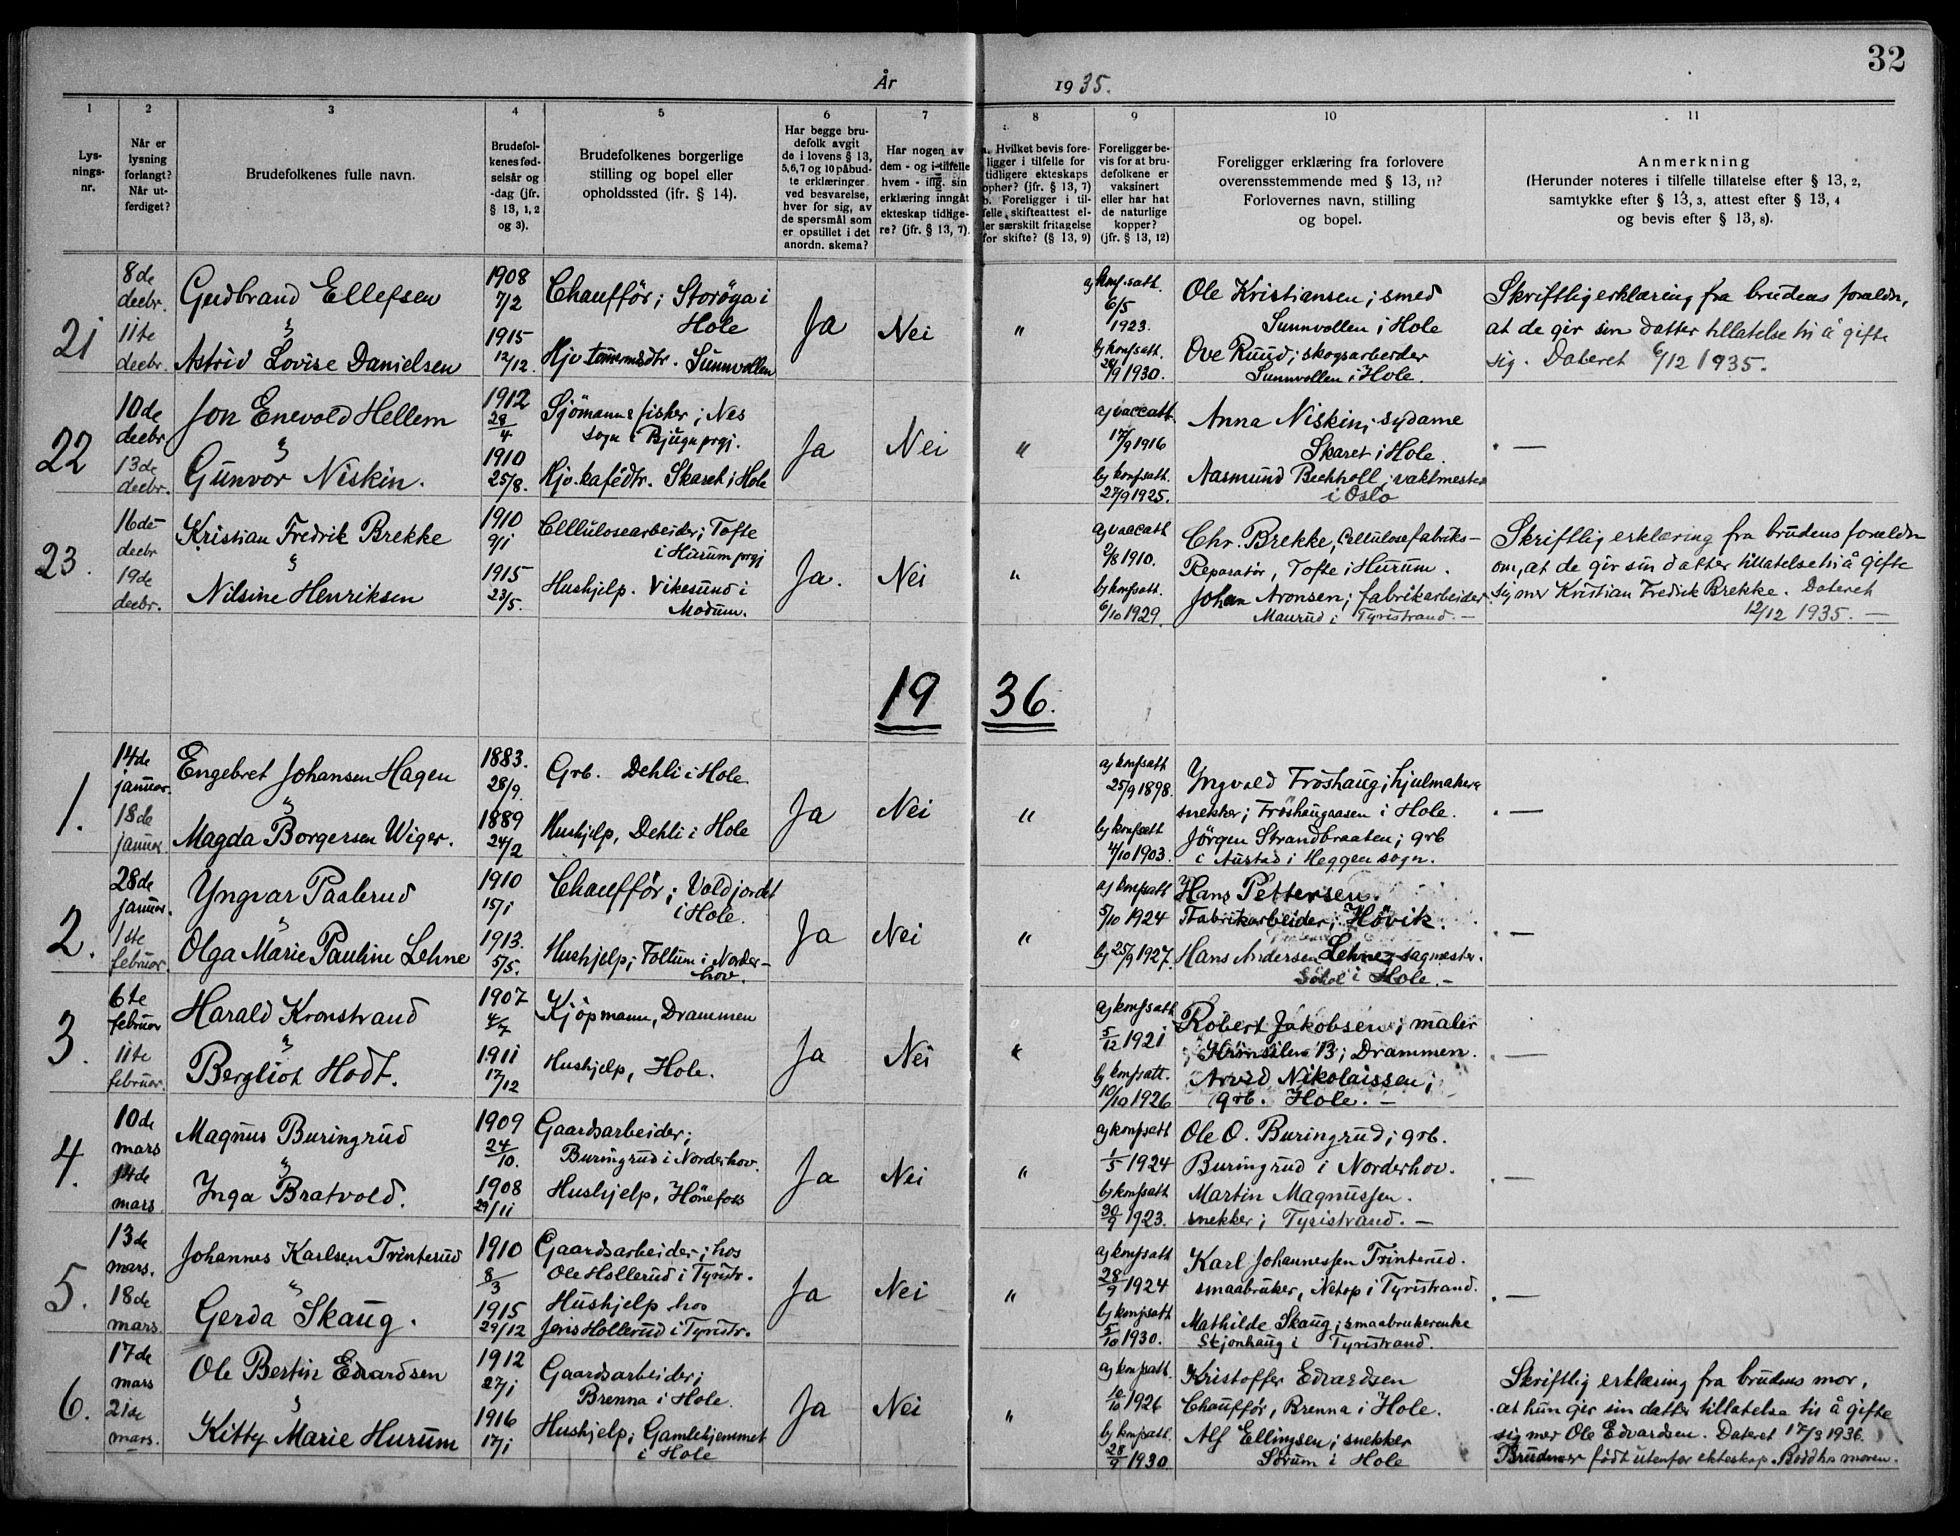 32
År 1935.
1 2 3 4 5 6 7 8 9 10 11
Lysningsnr.
Når er lysning forlangt? Når utferdiget?
Brudefolkenes fulle navn.
Brudefolkenes fødselsår og -dag (jfr. § 13, 1, 2 og 3).
Brudefolkenes borgerlige stilling og bopel eller opholdssted (jfr. § 14).
Har begge brudefolk avgit de i lovens § 13, 5,6,7 og 10 påbudte erklæringer ved besvarelse, hver for sig, av de spørsmål som er opstillet i det anordn. skema?
Har nogen av dem - og i tilfelle hvem - iflg. sin erklæring inngått ekteskap tidligere? (jfr. § 13, 7).
a. Hvilket bevis foreligger i tilfelle for tidligere ekteskaps ophør? (jfr. § 13, 7) b. Foreligger i tilfelle skifteattest eller særskilt fritagelse for skifte? (§ 13, 9)
Foreligger bevis for at brudefolkene er vaksinert eller har hat de naturlige kopper? (jfr. § 13, 12)
Foreligger erklæring fra forlovere overensstemmende med § 13, 11? Forlovernes navn, stilling og bopel.
Anmerkning
(Herunder noteres i tilfelle tillatelse efter § 13, 2, samtykke efter § 13, 3, attest efter § 13, 4 og bevis efter § 13, 8).
21
8de decbr.
11te decbr.
Gudbrand Ellefsen
"
Astrid Lovise Danielsen
1908 7/2
1915 12/12.
Chauffør; Storøya i Hole
Hjv. tømermsdtr. Sunnvollen
Ja
Nei
"
a) konf.satt. 6/5 1923.
b) konfsatt. 28/9 1930.
Ole Kristiansen; smed
Sunnvollen i Hole
Ove Ruud; skogsarbeider
Sunnvollen i Hole.
Skriftlig erklæring fra brudens foreldr,
at de gir sin datter tillatelse til å gifte
sig. Dateret 6/12 1935.
22
10de decbr
13de decbr.
Jon Enevold Hellem
"
Gunvor Niskin.
1912 28/4
1910 25/8.
Sjømann & fisker; Nes
sogn i Bjugn prgj.
Hjv. kafédtr. Skaret i Hole
Ja
Nei
"
a) vaccatt. 17/9 1916
b) konfsatt. 27/9 1925.
Anna Niskin; sydame
Skaret i Hole.
Aasmund Bechholl; vaktmester
i Oslo
. —
23.
16de decbr
19de decbr.
Kristian Fredrik Brekke
"
Nilsine Henriksen
1910 9/1
1915 23/5.
Cellulosearbeider; Tofte
i Hurum prgj
Hushjelp. Vikesund i
Modum.
Ja.
Nei
"
a) vaccatt 6/8 1910.
b) konfsatt. 6/10 1929.
Chr. Brekke, Cellulosefabriks-
Reparatør, Tofte i Hurum.
Johan Aronsen; fabrikarbeider
Maurud i Tyristrand. —
Skriftlig erklæring fra brudens foreldre
om, at de gir sin datter tillatelse til å gifte
sig med Kristian Fredrik Brekke. Dateret
12/12 1935. —
1936.
1.
14de januar.
18de januar
Engebret Johansen Hagen
"
Magda Borgersen Wiger.
1883. 28/9.
1889 24/2
Grb. Dehli i Hole.
Hushjelp, Dehli i Hole
Ja
Nei
"
a) konfsatt 25/9 1898.
b) konfsatt 4/10 1903.
Yngvald Frøshaug; hjulmaker &
snekker; Frøshaugaasen i Hole.
Jørgen Strandbraaten; grb
i Austad i Heggen sogn.
. —
2.
28de januar.
1ste februar.
Yngvar Paalerud
"
Olga Marie Pauline Lehne
1910 15/1
1913. 5/5.
Chauffør; Voldjordet
i Hole.
Hushjelp; Follum i Norder-
hov.
Ja
Nei
"
a) konfsatt 5/10 1924
b) 25/9 1927.
Hans Pettersen.
Fabrikarbeider; Høvik.
Hans Andersen Lehne, sagmester
i Hole. —
. —
3.
6te februar
11te februar.
Harald Kronstrand
"
Bergliot Hodt.
1907 4/7
1911 17/12
Kjøpmann, Drammen
Hushjelp, Hole.
Ja
Nei
"
a) konfsatt 5/12 1921
b) konfsatt. 10/10 1926
Robert Jakobsen; maler
13; Drammen.
Arvid Nikolaissen;
grb. Hole. —
. —
4.
10de mars
14de mars.
Magnus Buringrud
"
Inga Bratvold.
1909 24/10.
1908 29/11
Gaardsarbeider;
Buringrud i Norderhov.
Hushjelp, Hønefoss
Ja
Nei
"
a) konfsatt 1/5 1924
b) konfsatt 30/9 1923.
Ole O. Buringrud; grb.
Buringrud i Norderhov.
Martin Magnussen.
snekker; Tyristrand. —
. —
5.
13de mars.
18de mars.
Johannes Karlsen Trinterud
"
Gerda Skaug.
1910 8/3
1915 29/12
Gaardsarbeider; hos
Ole Hollerud i Tyristr.
Hushjelp hos
Jens Hollerud i Tyristr.
Ja
Nei
"
a) konfsatt 28/9 1924
b) konfsatt 5/10 1930.
Karl Johannessen Trinterud.
smaabruker, Netop i Tyristrand.
Mathilde Skaug; smaabrukerenke
Stjonhaug i Tyristrand.
. —
6.
17de mars
21de mars.
Ole Bertin Edvardsen
"
Kitty Marie Hurum
1912 27/1
1916 17/1
Gaardsarbeider;
Brenna i Hole.
Hushjelp; Gamlehjemmet
i Hole
Ja
Nei
"
a) konfsatt. 10/10 1926
b) konfsatt. 28/9 1930.
Kristoffer Edvardsen
Chauffør, Brenna i Hole.
Alf Ellingsen; snekker
Sørum i Hole
Skriftlig erklæring fra brudens mor,
at hun gir sin datter tillatelse til å gifte
sig med Ole Edvardsen. Dateret 17/3 1936.
Bruden er født utenfor ekteskap. Bodd hos moren.